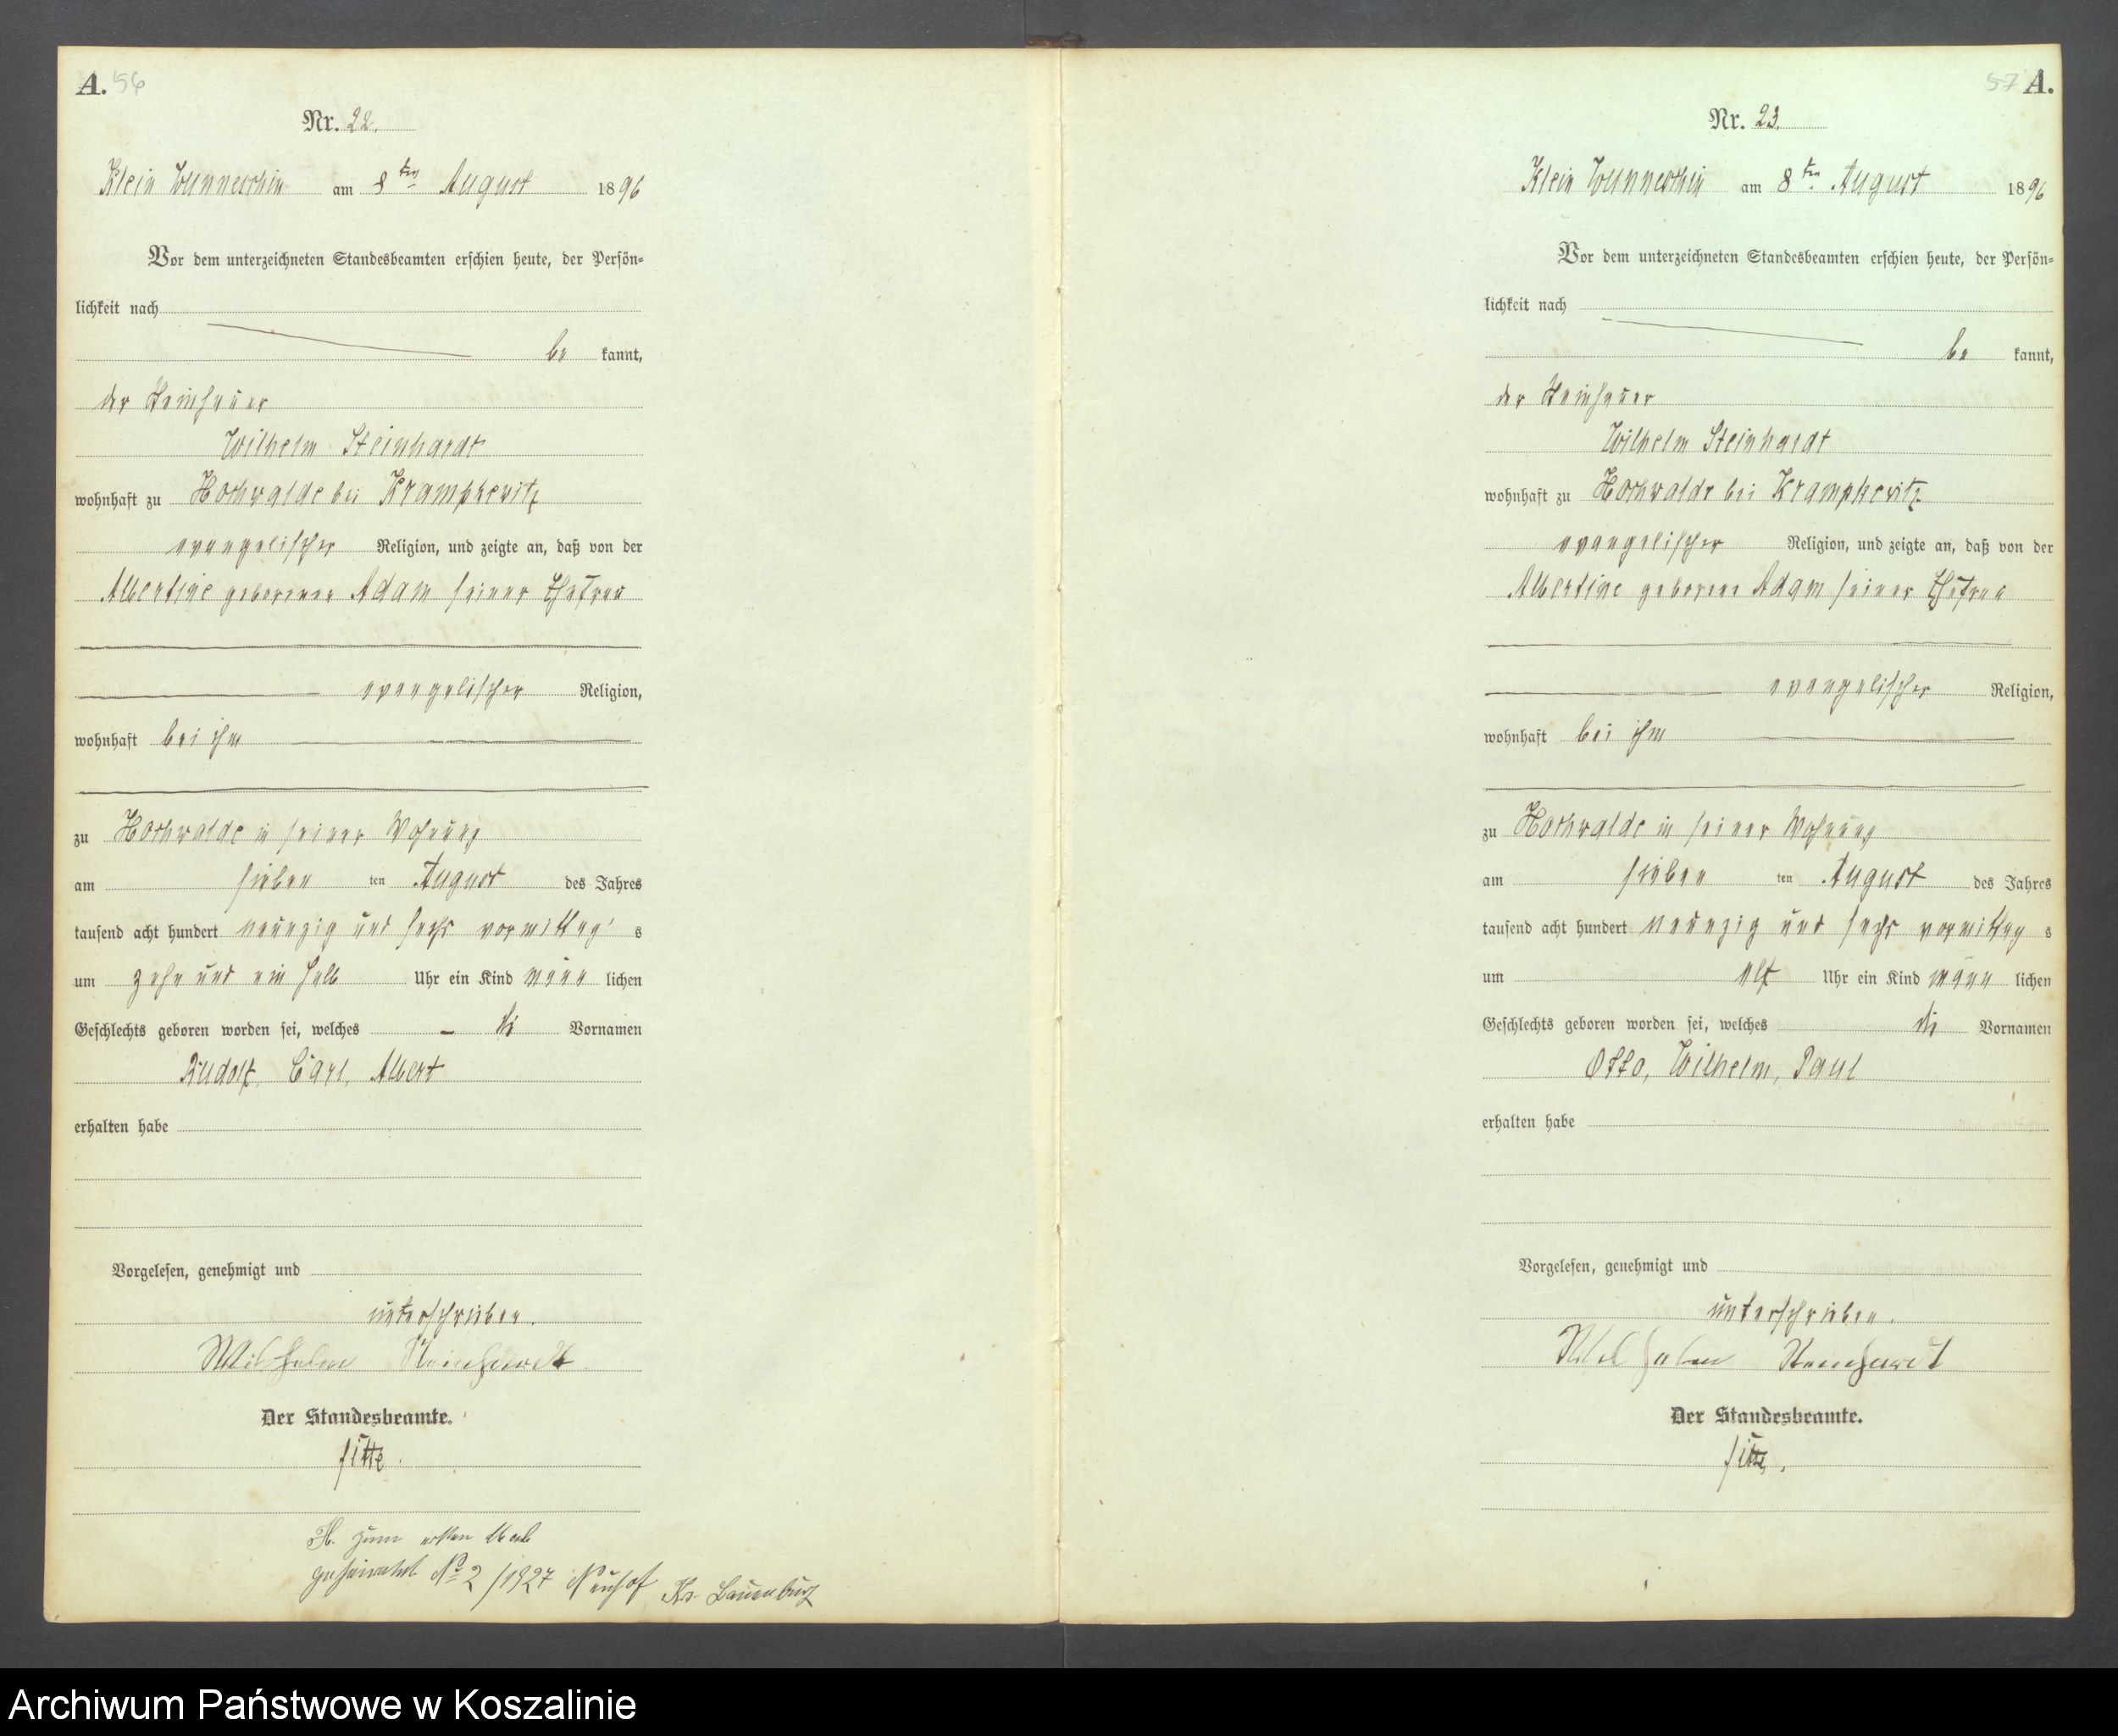 A. 56
Nr. 22.
Klein Wunneschin am 8ten August 1896
Vor dem unterzeichneten Standesbeamten erschien heute, der Persön-
lichkeit nach
be kannt,
der Steinhauer
Wilhelm Steinhardt
wohnhaft zu Hochwalde bei Krampkewitz
evangelischer Religion, und zeigte an, daß von der
Albertine geborenen Adam seiner Ehefrau
evangelischer Religion,
wohnhaft bei ihm
zu Hochwalde in seiner Wohnung
am sieben ten August des Jahres
tausend acht hundert neunzig und sechs vormittag s
um zehn und ein halb Uhr ein Kind männ lichen
Geschlechts geboren worden sei, welches die Vornamen
Rudolf, Carl, Albert
erhalten habe
Vorgelesen, genehmigt und
unterschrieben.
Wilhelm Steinhardt
Der Standesbeamte.
H. zum ersten Mal
geheiratet No 2/1927 Neuhof Kr. Lauenburg
57 A.
Nr. 23.
Klein Wunneschin am 8ten August 1896
Vor dem unterzeichneten Standesbeamten erschien heute, der Persön-
lichkeit nach
be kannt,
der Steinhauer
Wilhelm Steinhardt
wohnhaft zu Hochwalde bei Krampkewitz
evangelischer Religion, und zeigte an, daß von der
Albertine geborene Adam seiner Ehefrau
evangelischer Religion,
wohnhaft bei ihm
zu Hochwalde in seiner Wohnung
am sieben ten August des Jahres
tausend acht hundert neunzig und sechs vormittag s
um elf Uhr ein Kind männ lichen
Geschlechts geboren worden sei, welches die Vornamen
Otto, Wilhelm, Paul
erhalten habe
Vorgelesen, genehmigt und
unterschrieben.
Wilhelm Steinhardt
Der Standesbeamte.
Archiwum Państwowe w Koszalinie